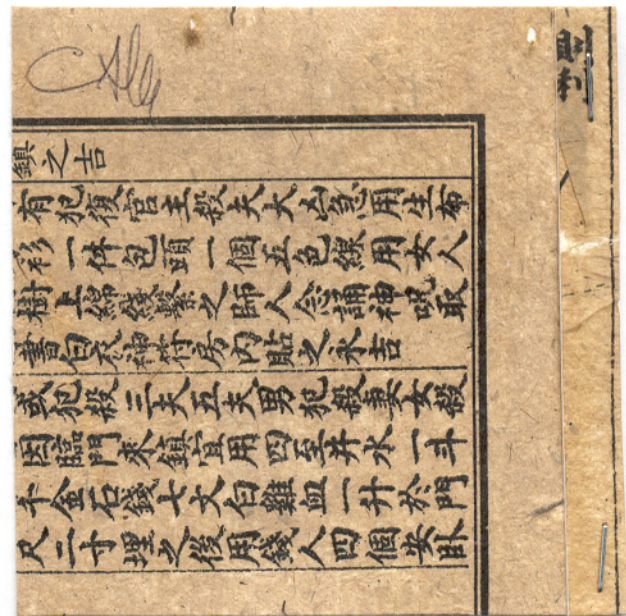 鎮之吉
有犯復宮主殺夫大凶急用生布
彩一体包頭一個五色線用女人
樹上綿綫繫之師人念誦神呪取
書白衣神符房内貼之永吉
或犯殺三夫五夫男犯殺妻女殺
因臨門來鎮宜用四至井水一斗
千金石錢七文白雞血一升於門
尺二寸埋之後用錢人四個安卧